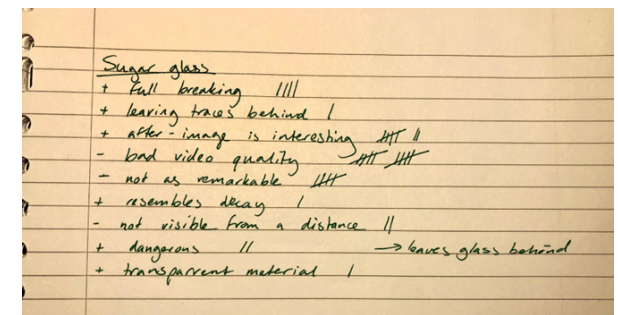 Sugar glass
+ full breaking ||||
+ leaving traces behind |
+ after-image is interesting 卌 ||
- bad video quality 卌 卌
- not as remarkable 卌
+ resembles decay |
- not visible from a distance ||
+ dangerous || → leaves glass behind
+ transparrent material |